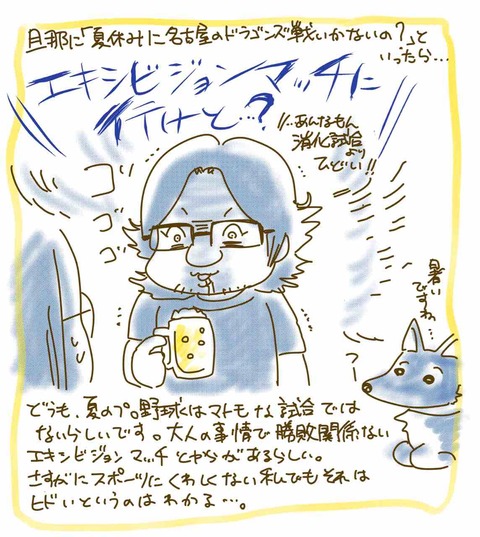 旦那に「夏休みに名古屋のドラゴンズ戦いかないの?」と
いったら…
エキシビジョンマッチに
行けと…?
あんなもん
消化試合
より
ひどい!!
ゴゴゴ
暑い
ですね…
どうも、夏のプロ野球はマトモな試合では
ないらしいです。大人の事情で勝敗関係ない
エキシビジョンマッチとやらがあるらしい。
さすがにスポーツにくわしくない私でもそれは
ヒドいというのはわかる…。